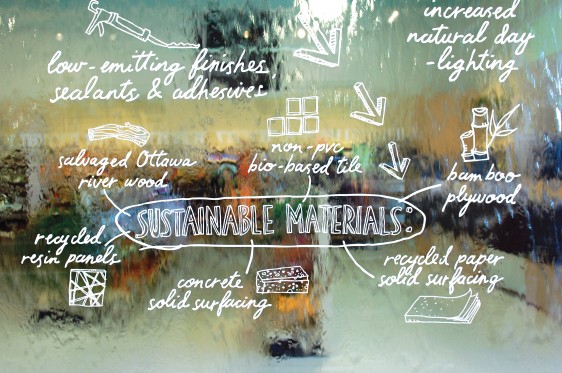 increased
natural day
-lighting
low-emitting finishes,
sealants & adhesives
salvaged Ottawa
river wood
non-pvc
bio-based tile
bamboo
plywood
SUSTAINABLE MATERIALS:
recycled
resin panels
concrete
solid surfacing
recycled paper
solid surfacing